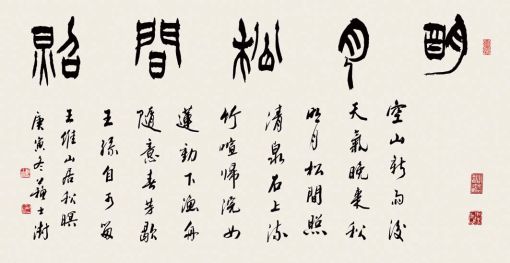 明月松間照
空山新雨後
天氣晚来秋
明月松間照
清泉石上流
竹喧歸浣女
蓮動下漁舟
隨意春芳歇
王孫自可留
王維山居秋暝
庚寅冬士澍